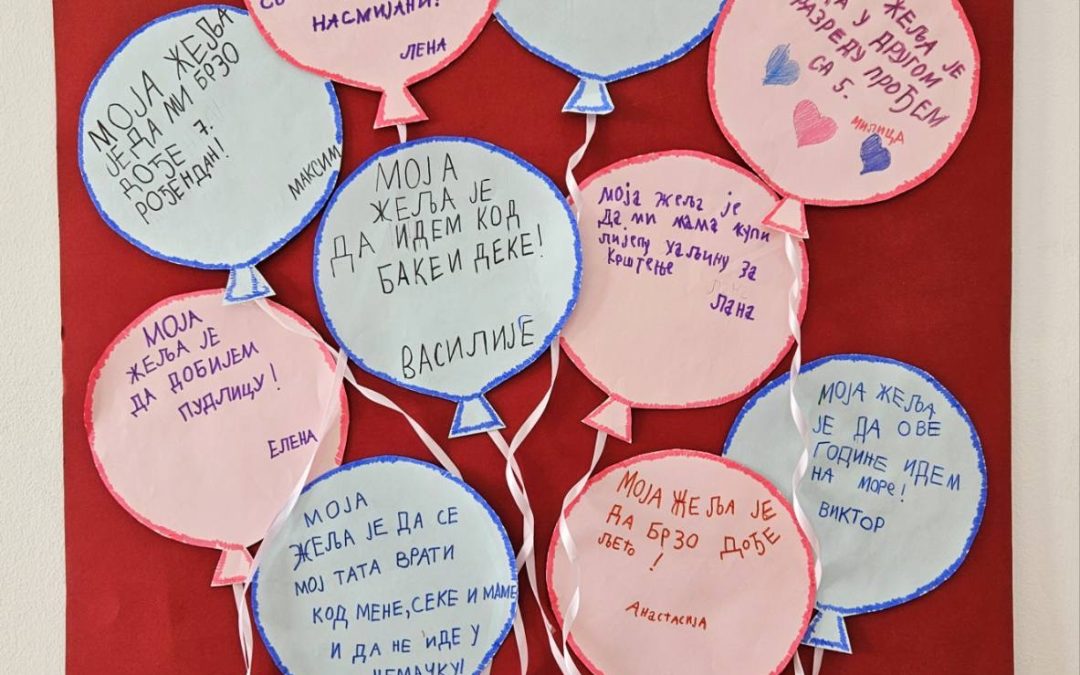 НАСМИЈАНИ!
ЛЕНА
МОЈА ЖЕЉА
ЈЕ ДА МИ БРЗО
ДОЂЕ 7.
РОЂЕНДАН!
МАКСИМ
ЖЕЉА ЈЕ
У ДРУГОМ
РАЗРЕДУ ПРОЂЕМ
СА 5.
МИЛИЦА
МОЈА
ЖЕЉА ЈЕ
ДА ИДЕМ КОД
БАКЕ И ДЕКЕ!
ВАСИЛИЈЕ
МОЈА ЖЕЉА ЈЕ
ДА МИ МАМА КУПИ
ЛИЈЕПУ ХАЉИНУ ЗА
КРШТЕЊЕ
ЛАНА
МОЈА
ЖЕЉА ЈЕ
ДА ДОБИЈЕМ
ПУДЛИЦУ!
ЕЛЕНА
МОЈА ЖЕЉА
ЈЕ ДА ОВЕ
ГОДИНЕ ИДЕМ
НА МОРЕ!
ВИКТОР
МОЈА
ЖЕЉА ЈЕ ДА СЕ
МОЈ ТАТА ВРАТИ
КОД МЕНЕ, СЕКЕ И МАМЕ
И ДА НЕ ИДЕ У
ЊЕМАЧКУ!
МОЈА ЖЕЉА ЈЕ
ДА БРЗО ДОЂЕ
ЉЕТО !
Анастасија